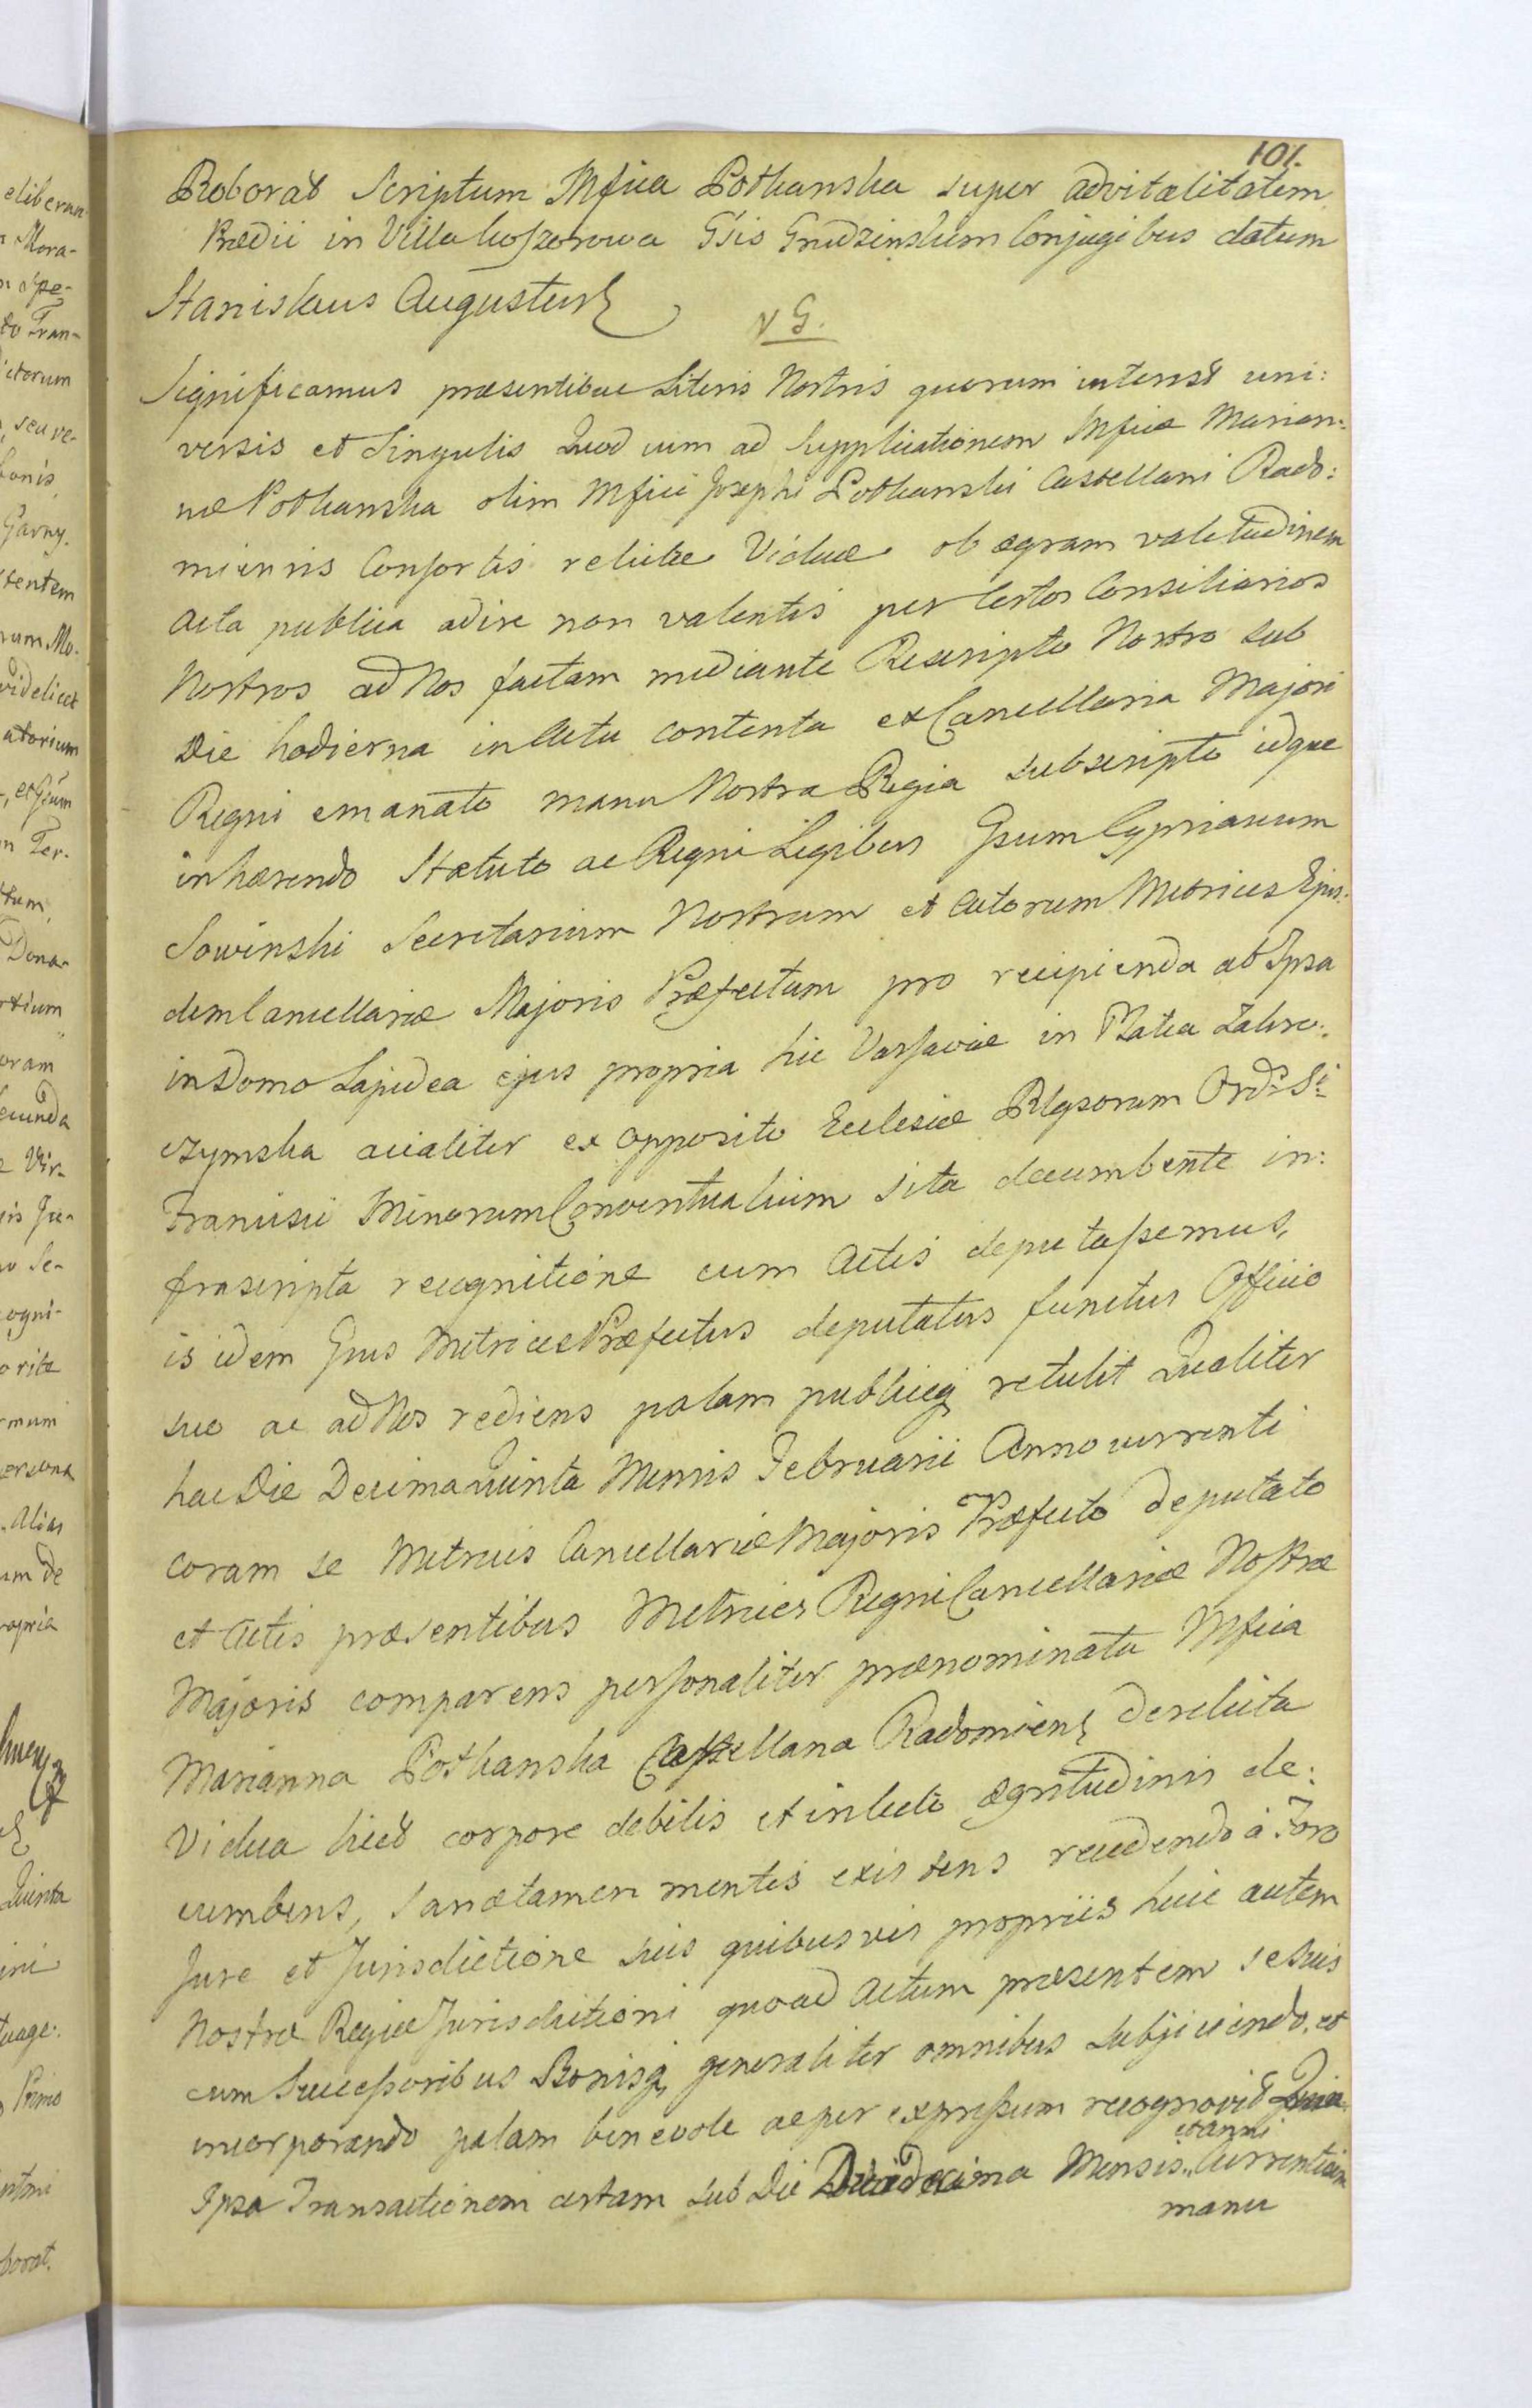 101.
Roborat Scriptum Mfica Potkanska super advitalitatem
Prædii in Villa Koszorowa Gsis Grudzinskim Conjugibus datum
Stanislaus Augustus
N G.
Significamus præsentibus Literis Nostris quorum interest uni:
versis et Singulis Quod cum ad Supplicationem Mficæ Marian:
næ Potkanska olim Mfici Josephi Potkanski Castellani Rado:
miensis Consortis relictæ Viduæ ob ægram valetudinem
Acta publica adire non valentis per Certos Consiliarios
Nostros ad Nos factam mediante Rescripto Nostro sub
Die hodierna in Actu contento ex Cancellaria Majori
Regni emanato manu Nostra Regia subscripto idque
inhærendo Statuto ac Regni Legibus Gsum Cyprianum
Sowinski Secretarium Nostrum et Actorum Metrices Ejus:
dem Cancellariæ Majoris Præfectum pro recipienda ab Ipsa
in Domo Lapidea ejus propria hic Varsaviæ in Platea Zakro:
czymska acialiter ex opposito Ecclesiæ Rlgsorum Ord: S:
Francisci Minorum Conventualium sita decumbente in:
frascripta recognitione cum Actis deputassemus,
is idem Gsus Metrices Præfectus deputatus functus Officio
suo ac ad Nos rediens palam publicq retulit Qualiter
hac Die Decima Quinta Mensis Februarii Anno currenti
coram se Metrices Cancellariæ Majoris Præfecto deputato
et Actis præsentibus Metrices Regni Cancellariæ Nostræ
Majoris comparens personaliter prænominata Mfica
Marianna Potkanska Castellana Radomiens derelicta
Vidua licet corpore debilis et in lecto ægritudinis de:
cumbens, sanæ tamen mentis existens recedendo à Foro
Jure et Jurisdictione suis quibusvis propriis huic autem
Nostræ Regiæ Jurisdictioni quoad Actum præsentem se suis
cum Successoribus Bonisq generaliter omnibus subjiciendo, et
incorporando palam benevole ac per expressum recognovit Quia
Ipsa Transactionem certam sub Die Duodecima Mensis et anni Currentium
manu